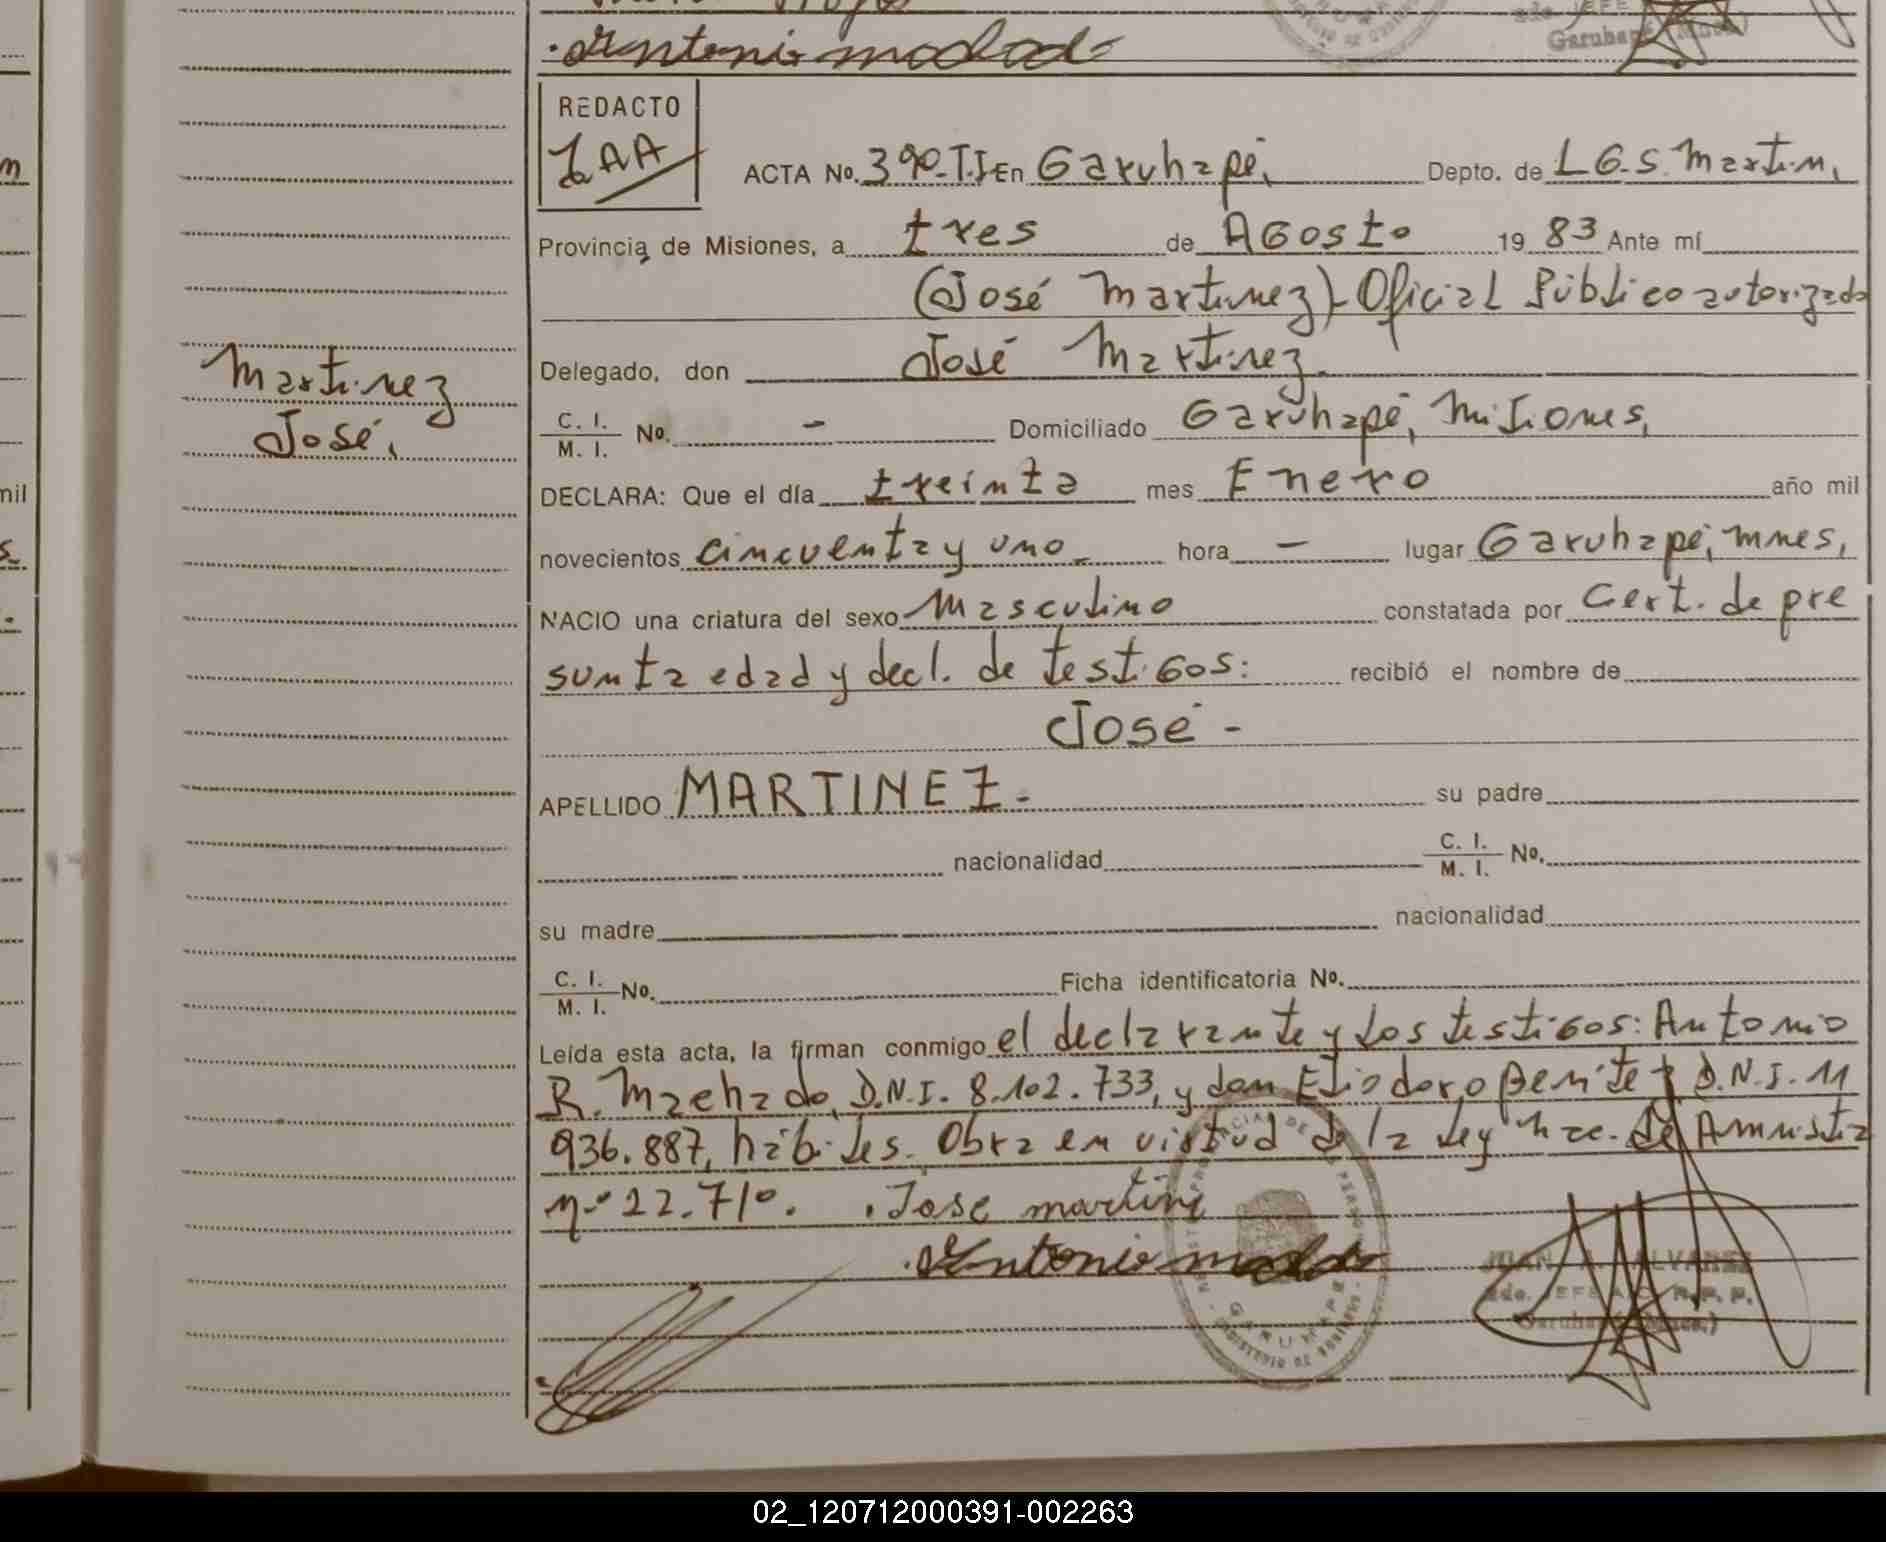 Antonio
Garuhapé (Mnes.)
REDACTO
JAA
ACTA No. 390-T.I En Garuhapé, Depto. de L G. S. Martín,
Provincia de Misiones, a tres de Agosto 19 83 Ante mí
(José Martinez)- Oficial Público autorizado
Delegado, don José Martinez.
Martinez
José,
C. I.
M. I. No. - Domiciliado Garuhapé, Misiones,
DECLARA: Que el día treinta mes Enero año mil
novecientos cincuenta y uno - hora - lugar Garuhapé, Mnes,
NACIO una criatura del sexo Masculino constatada por Cert. de pre
sunta edad y decl. de testigos: recibió el nombre de
José -
APELLIDO MARTINEZ - su padre
nacionalidad C. I.
M. I. No.
su madre nacionalidad
C. I.
M. I. No. Ficha identificatoria No.
Leída esta acta, la firman conmigo el declarante y los testigos: Antonio
R. Machado, D.N.I. 8.102.733, y don Eliodoro Benitez D.N.I. 11
936.887, hábiles. Obra en virtud de la Ley Nac. de Amnistia
nº 22.710. Jose martine
Antonio
JUAN A. ALVAREZ
GARUHAPE
Garuhapé (Mnes.)
mil
02_120712000391-002263